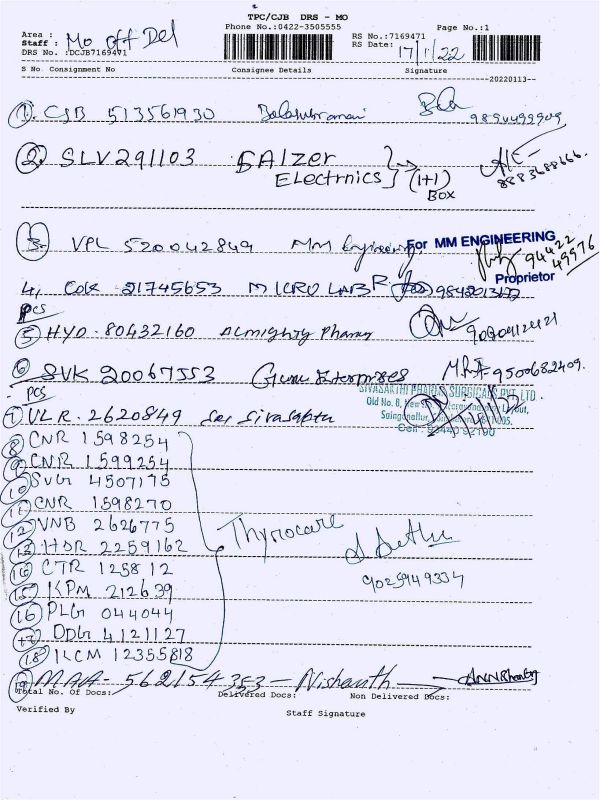 TPC/CJB DRS - MO
Phone No.:0422-3505555 Page No.:1
Area :
Staff : Mo off Del
DRS No. :DCJB7169471
RS No.:7169471
RS Date: 17/1/22
S No Consignment No Consignee Details Signature
20220113
1. CJB 513561930 Balasubramani 9894499909
2. SLV 291103 GAlzer
Electrnics (1+1) BOX 8883688666.
3. VPL 520042849 MM Engineering For MM ENGINEERING
94422 49976
Proprietor
4, COK 21745653 MICRO LABR
PCS
5 HYD - 80432160 Almighty Pharmy
6 SVK 20067553 Guru Enterprises M.R.F-9500682409.
SIVASAKTHI PHARMA SURGICALS PVT. LTD.
PCS
Old No. 8, New
7 VLR - 2620849 Sri Sivasaptu
8 CNR 1598254
9 CNR 1599254
10 SVG 4507175
11 CNR 1598270
12 VNB 2626775
Thyrocare
13 HSR 2259162
14 CTR 125812
9025949334
15 KPM 212639
16 PLG 044044
17 DDG 4121127
18 KCM 12355818
19 MAA - 562154353 - Nishanth
Total No. Of Docs: Delivered Docs: Non Delivered Docs:
Verified By Staff Signature